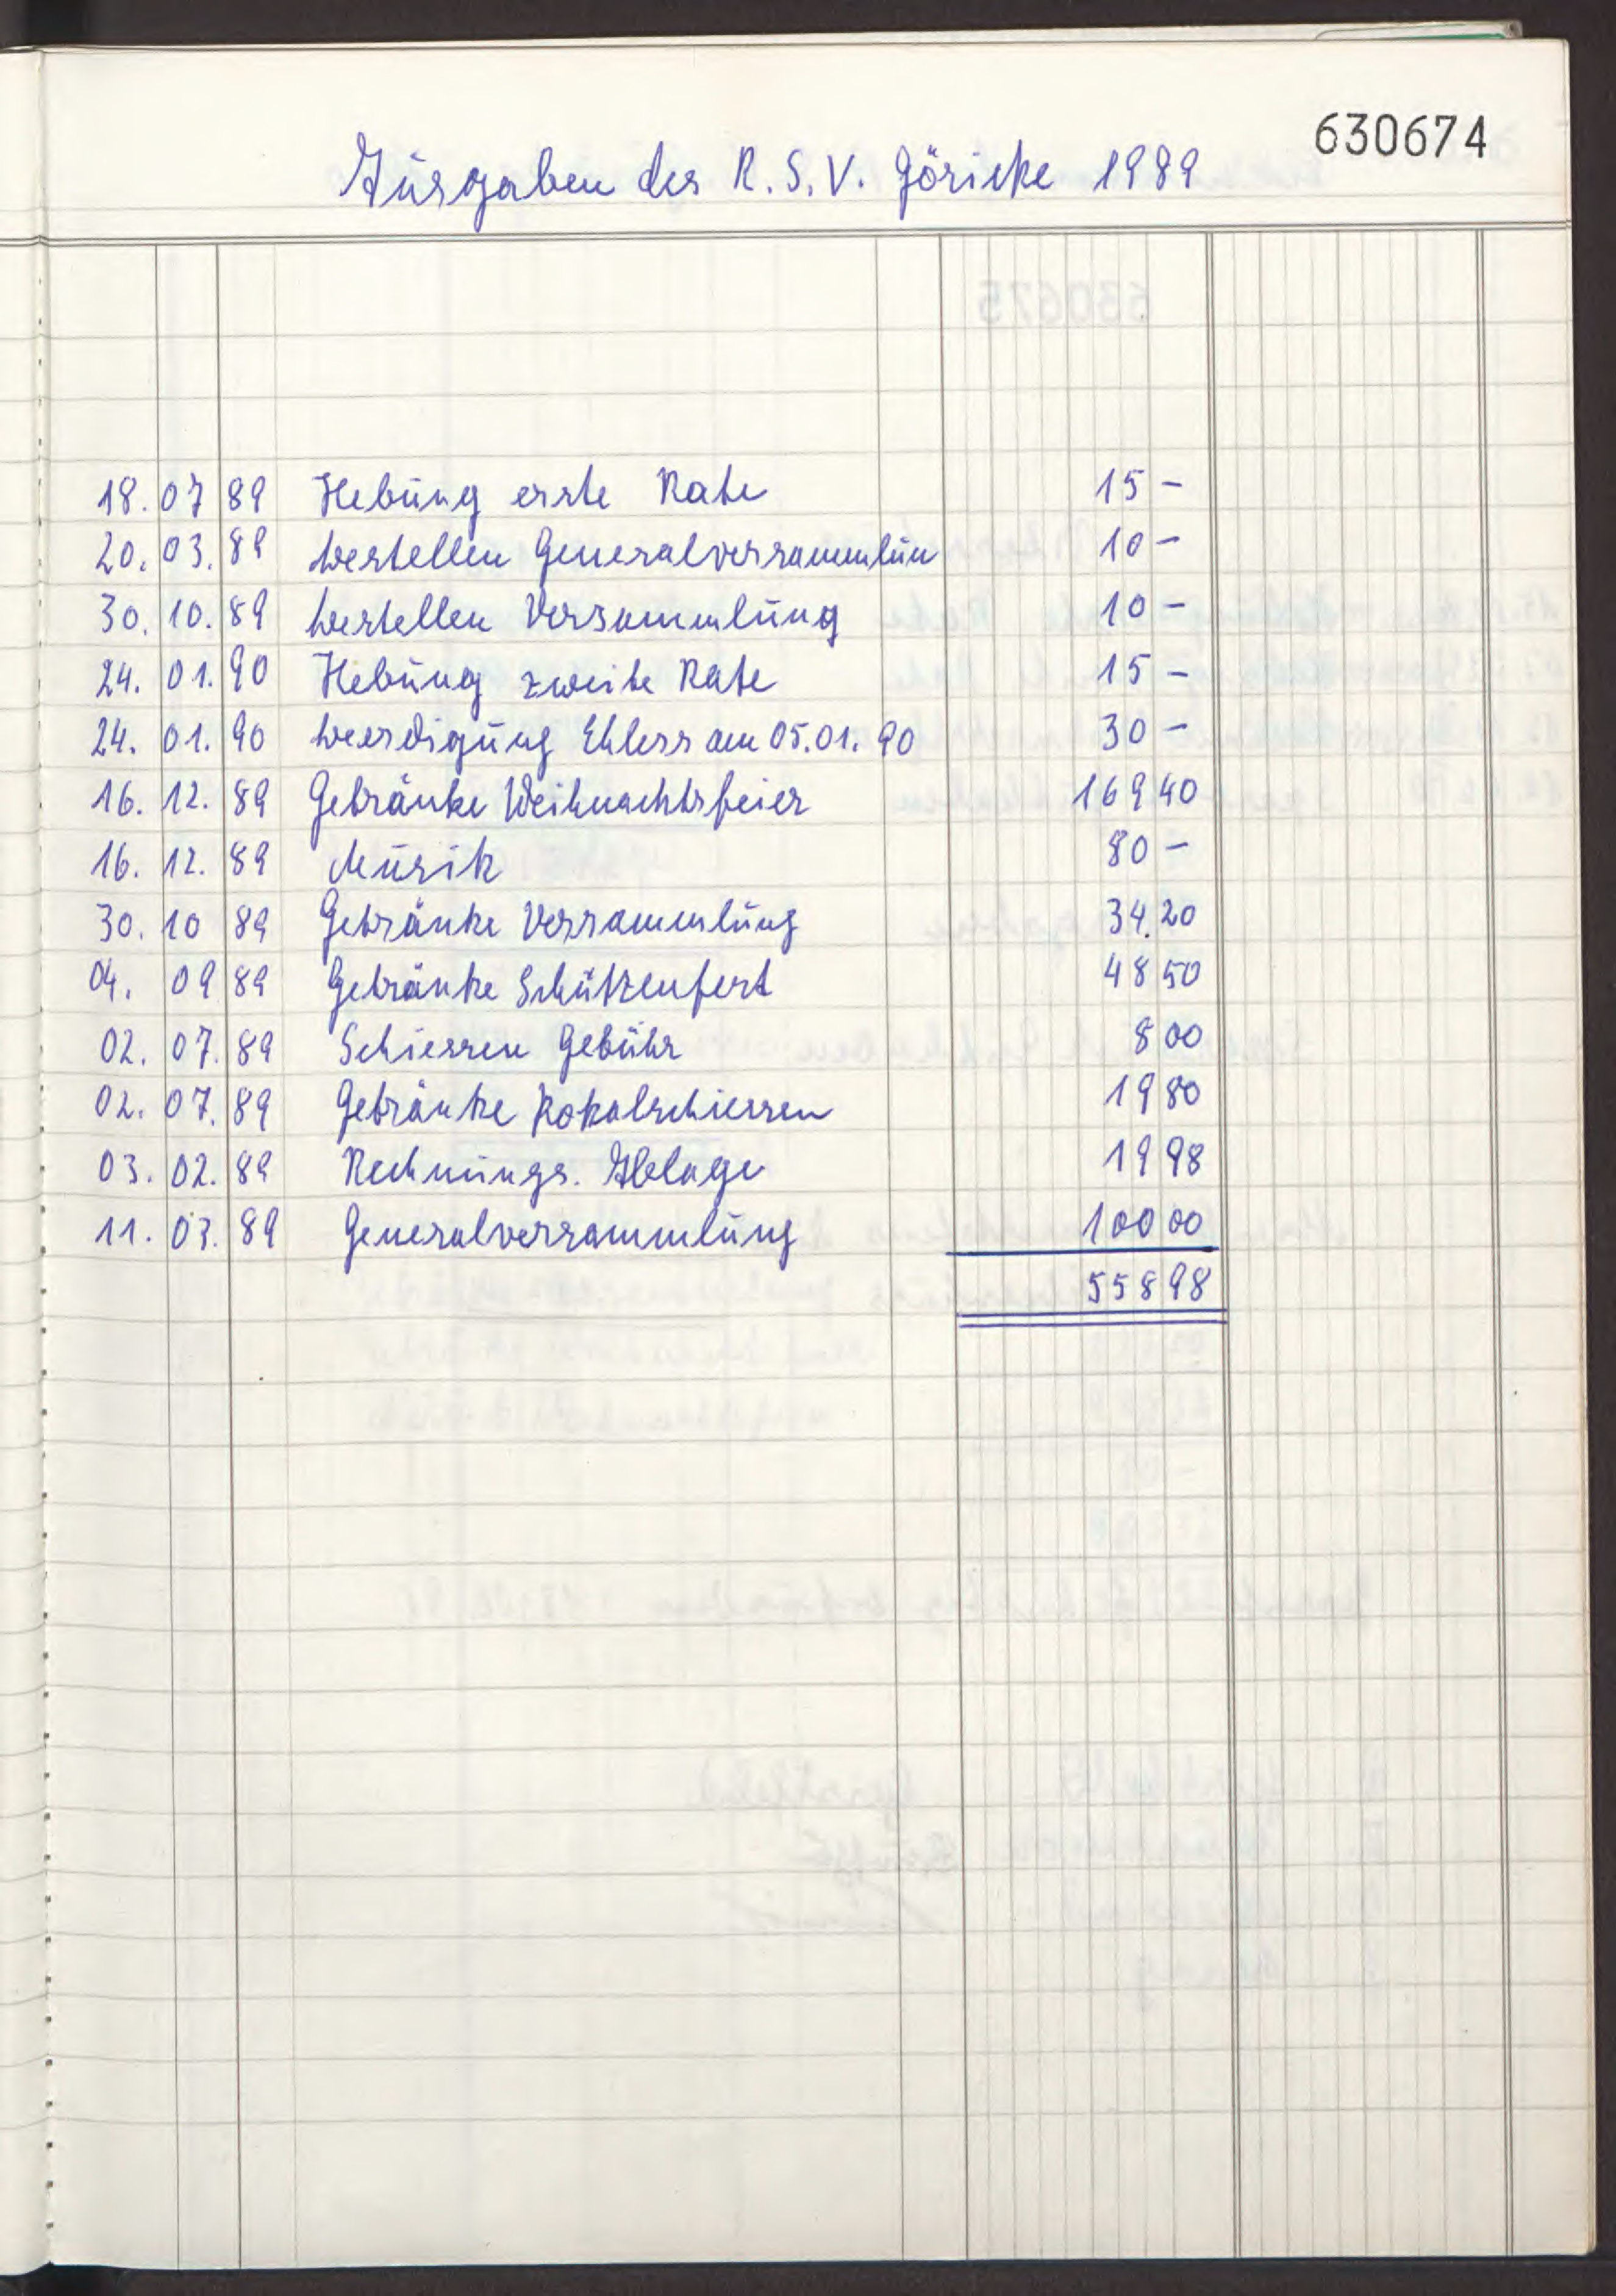 630674
Ausgaben des R.S.V. Göricke 1989
18. 07 89 Hebung erste Rate 15 -
20. 03. 89 bestellen Generalversammlun 10 -
30. 10. 89 bestellen Versammlung 10 -
24. 01. 90 Hebung zweite Rate 15 -
24. 01. 90 beerdigung Ehlers am 05.01.90 30 -
16. 12. 89 Getränke Weihnachtsfeier 169 40
16. 12. 89 Musik 80 -
30. 10 89 Getränke Versammlung 34.20
04. 09 89 Getränke Schützenfest 48 50
02. 07. 89 Schiessen Gebühr 8 00
02. 07. 89 Getränke Pokalschiessen 19 80
03. 02. 89 Rechnungs. Ablage 19 98
11. 03. 89 Generalversammlung 100 00
558 98